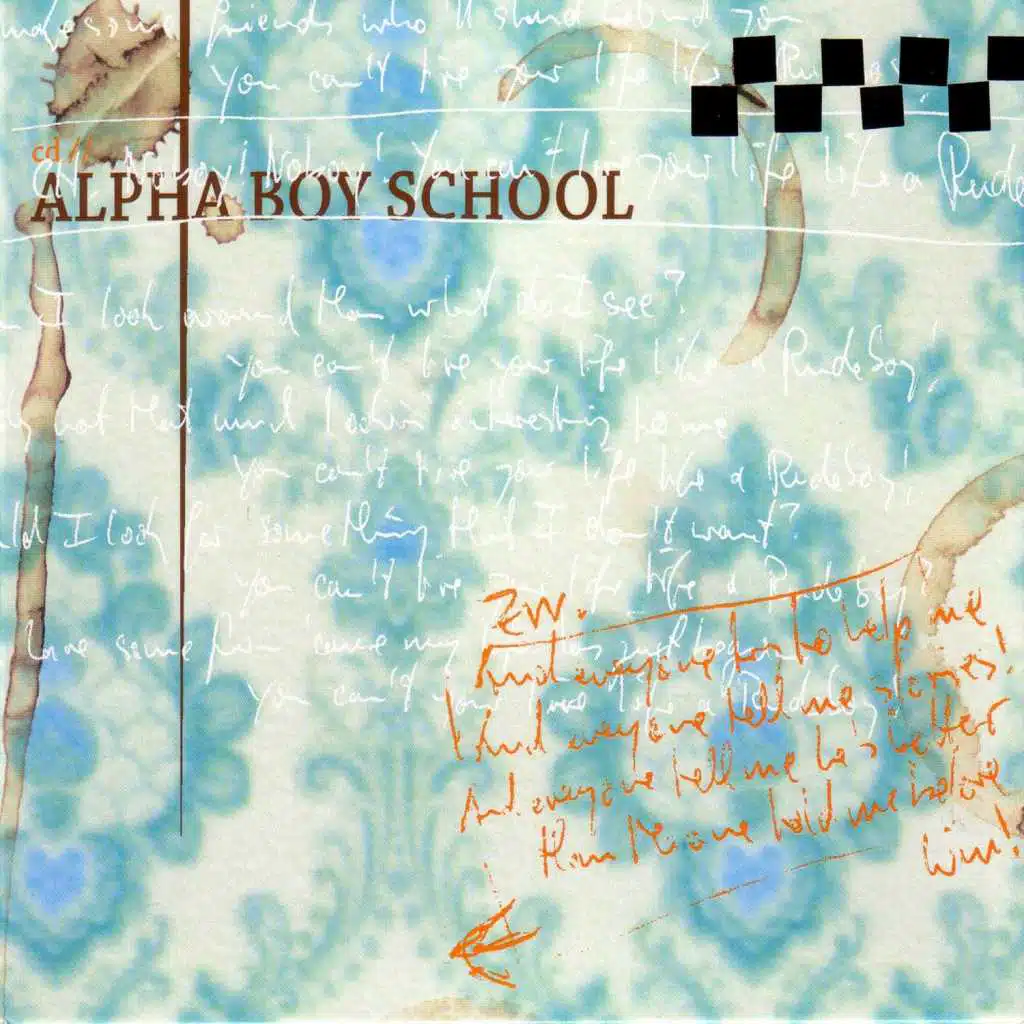 some friends who'll stand behind you
you can't live your life like a Rudeboy!
cd //
oh Noboy! Noboy! You can't live your life like a Rude
ALPHA BOY SCHOOL
I look around then what do I see?
you can't live your life like a Rudeboy!
not that much lookin' interesting to me
you can't live your life like a Rudeboy!
I look for something that I don't want?
you can't live your life like a Rudeboy?
some fun 'cause my has just begun
you can't your live like a Rudeboy
ZW.
And everyone has to help me
And everyone tell me stories!
And everyone tell me he's better
than the one told me before
him!